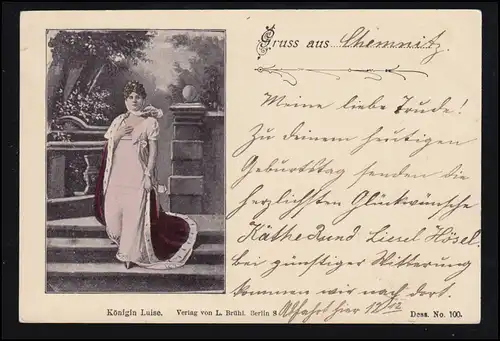 Gruss aus Chemnitz.
Meine liebe Trude!
Zu deinem heutigen
Geburtstag senden die
herzlichsten Glückwünsche
Käthe und Liesel Hösel.
Bei günstiger Witterung
kommen wir nach dort.
Abfahrt hier 12 02
Königin Luise. Verlag von L. Brühl. Berlin S
Dess. No. 100.